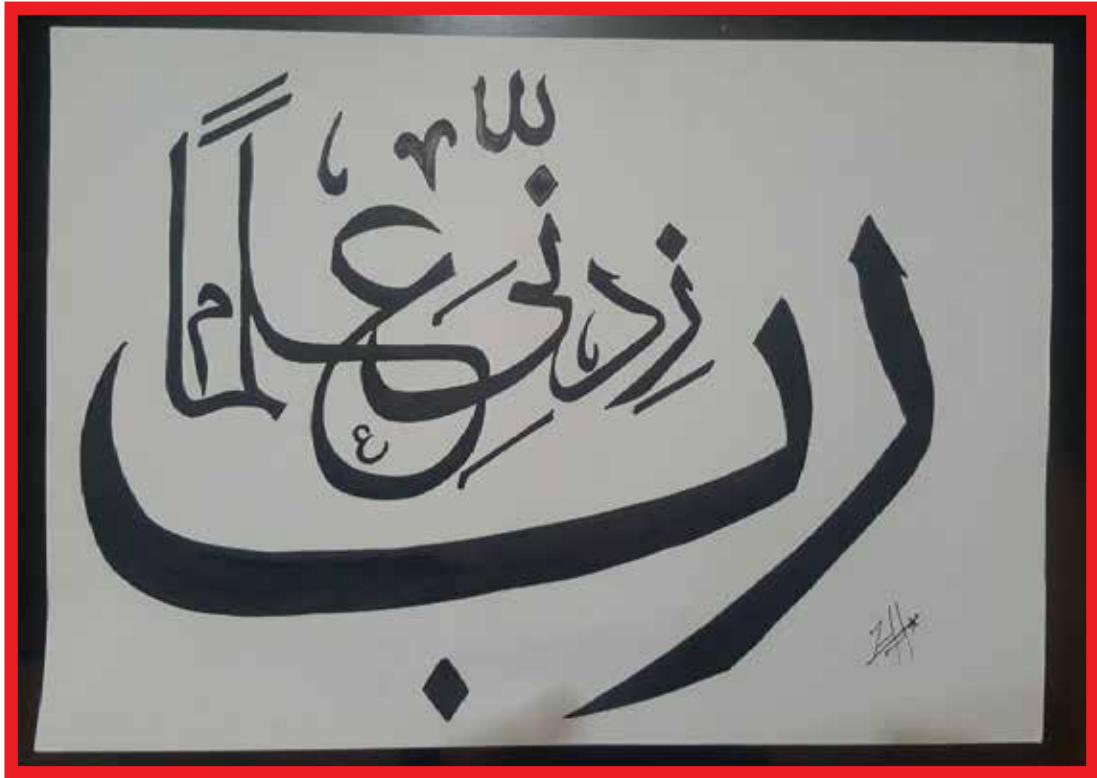 رب زِدْنِّي عِلْمًا